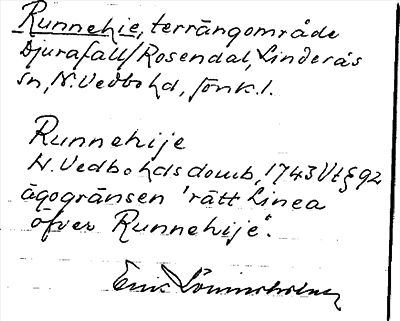 Runnehie, terrängområde
Djurafall/Rosendal, Linderås
sn, N. Vedbo hd, Jönk. l.
Runnehije
N. Vedbo hds domb, 1743 Vt § 92
ägogränsen "rätt Linea
öfver Runnehije".